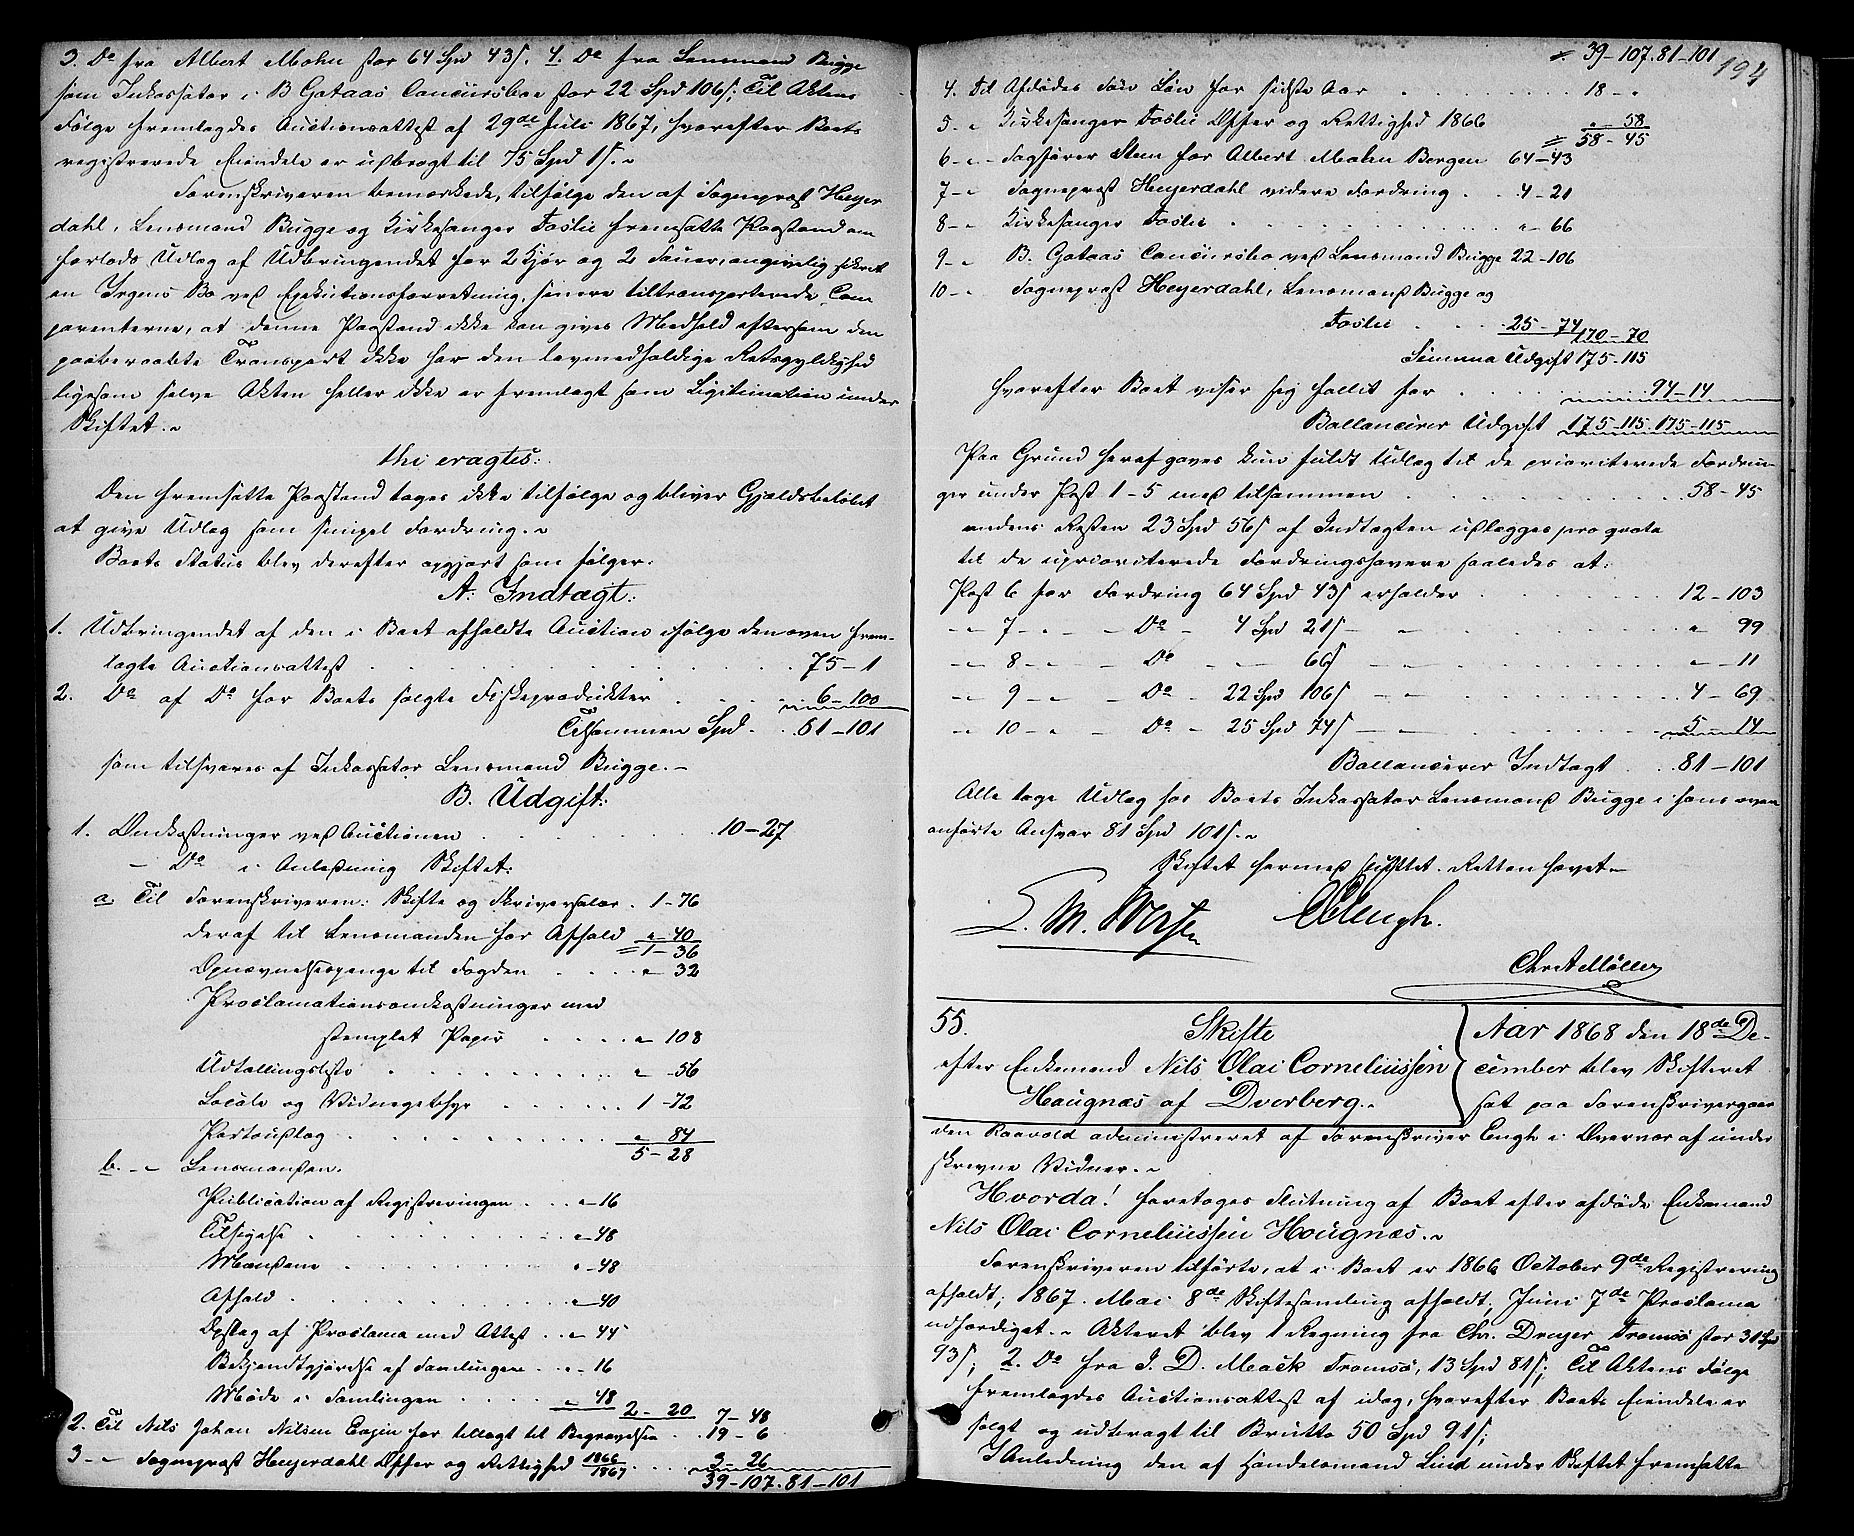 3. Do fra Albert Mohn stor 64 Spd 43 s. 4. Do fra Lensmand Bugge
som Inkassator i B Gataas Concursboe stor 22 Spd 106 s; Til Aktens
Følge fremlagdes Auctionsattest af 29de Juli 1867, hvorefter Boets
registrerede Eiendele er udbragt til 75 Spd 1 s.
Sorenskriveren bemærkede, tilfølge den af Sogneprest Heyer
dahl, Lensmand Bugge og Kirkesanger Foslie fremsatte Paastand om
forlods Udlæg af Udbringendet for 2 Kjør og 2 Sauer, angivelig sikret
en Irgens Bo ved Exekutionsforretning, senere tiltransporterede Com
parenterne, at denne Paastand ikke kan gives Medhold eftersom den
paaberaabte Transport ikke har den lovmedholdige Retsgyldighed
ligesom selve Akten heller ikke er fremlagt som Legitimation under
Skiftet.
thi eragtes:
Den fremsatte Paastand tages ikke tilfølge og bliver Gjældsbeløbet
at give Udlæg som simpel Fordring.
Boets Status blev derefter opgjort som følger:
A. Indtægt:
1. Udbringendet af den i Boet afholdte Auction ifølge den oven frem-
lagte Auctionsattest 75-1
2. Do af Do for Boets solgte Fiskeprodukter 6-100
Tilsammen Spd. 81-101
som tilsvares af Inkassator Lensmand Bugge.-
B. Udgift:
1. Omkostninger ved Auctionen 10-27
- Do i Anledning Skiftet:
a. Til Sorenskriveren: Skifte og Skriversalær. 1-76
deraf til Lensmanden for Afhold " 40
1-36
Opnævnelsespenge til Fogden " 32
Proclamationsomkostninger med
stemplet Papir " 108
Udtællingsliste " -56
Locale og Vidnegebyhr 1-72
Portoudlæg " 84
5-28
b. - " Lensmanden.
Publication af Registreringen " -16
Tilsigelse " -48
Mændene " -48
Afhold " -40
Opslag af Proclama med Attest " -44
Bekjendtgjørelse af Samlingen " -16
Møde i Samlingen " 48
2-20 7-48
2. Til Nils Johan Nilsen Enjen for tillagt til Begravelsen 19-6
3 - " Sogneprest Heyerdahl Offer og Rettighed 1866/1867 3-26
39-107. 81-101
39-107. 81-101
194
4. Til Afdødes Søn Løn for sidste Aar 18-"
5 - " Kirkesanger Foslie Offer og Rettighed 1866 "-58
58-45
6 - " Sagfører Steen for Albert Mohn Bergen 64-43
7 - " Sogneprest Heyerdahl videre Fordring 4-21
8 - " Kirkesanger Foslie " 66
9 - " B. Gataas Concursbo ved Lensmand Bugge 22-106
10 - " Sogneprest Heyerdahl, Lensmand Bugge og
Foslie 25-74 170-70
Summa Udgift 175-115
hvorefter Boet viser sig fallit for 94-14
Ballancerer Udgift 175-115. 175-115
Paa Grund heraf gaves kun fuldt Udlæg til de prioriterede Fordrin-
ger under Post 1-5 med tilsammen 58-45
medens Resten 23 Spd 56 s af Indtægten udlægges pro qvota
til de uprioriterede Fordringshavere saaledes at:
Post 6 for Fordring 64 Spd 43 s erholder 12-103
- " 7 - " - Do - 4 Spd 21 s - " 99
- " 8 - " - Do - 66 s - " -11
- " 9 - " - Do - 22 Spd 106 s - 4-69
- " 10 - " Do - 25 Spd 74 s - 5-14
Ballancerer Indtægt 81-101
Alle tage Udlæg hos Boets Inkassator Lensmand Bugge i hans oven
anførte Ansvar 81 Spd 101 s.
Skiftet hermed sluttet. Retten hævet
Engh.
Chr A Møller
55. Skifte
efter Enkemand Nils Olai Corneliussen
Haugnæs af Dverberg.
Aar 1868 den 18de De-
cember blev Skifteret
sat paa Sorenskrivergaar
den Raavold administreret af Sorenskriver Engh i Overvær af under
skrevne Vidner.
Hvorda! foretoges Slutning af Boet efter afdøde Enkemand
Nils Olai Corneliussen Haugnæs.
Sorenskriveren tilførte, at i Boet er 1866 October 9de Registrering
afholdt; 1867. Mai 8de Skiftesamling afholdt; Juni 7de Proclama
udfærdiget. Akteret blev 1 Regning fra Chr. Dreyer Tromsø stor 31 Spd
93 s; 2. Do fra I. D. Mack Tromsø, 13 Spd 81 s; Til Aktens Følge
fremlagdes Auctionsattest af idag, hvorefter Boets Eiendele er
solgt og udbragt til Brutto 50 Spd 91 s;
I Anledning den af Handelsmand Lind under Skiftet fremsatte